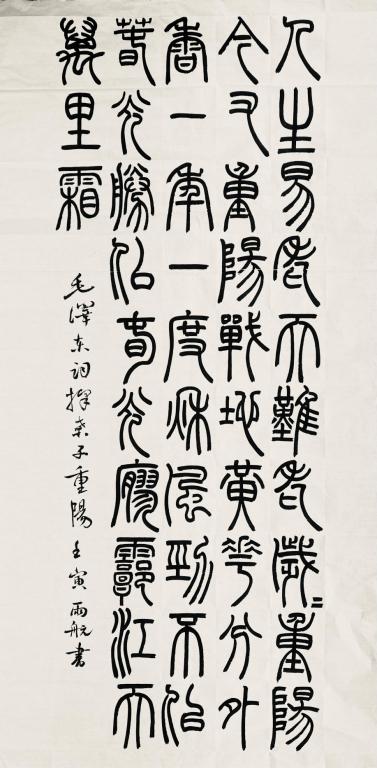 人生易老天難老歲〻重陽
今又重陽戰地黃花分外
香一年一度秋風勁不似
春光勝似春光寥廓江天
萬里霜
毛澤东詞採桒子重陽 壬寅雨航書